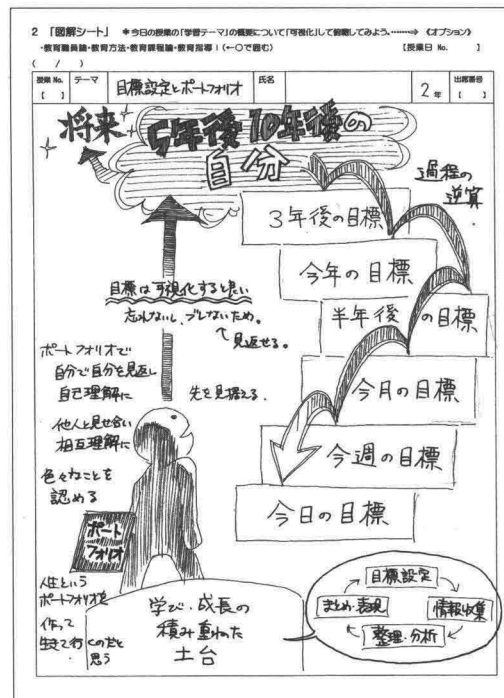 2 「図解シート」 *今日の授業の「学習テーマ」の概要について「可視化」して俯瞰してみよう。………⇒ 《オプション》
・教育職員論・教育方法・教育課程論・教育指導Ⅰ(←○で囲む) 【授業日 No. 】
( / )
授業 No. テーマ 目標設定とポートフォリオ 氏名 2年 出席番号
【 】 【 】
将来
5年後10年後の
自分
過程の
逆算
3年後の目標
今年の目標
半年後の目標
今月の目標
今週の目標
今日の目標
目標は可視化すると良い
忘れないし、ブレないため。
見返せる。
ポートフォリオで
自分で自分を見返し
自己理解に
他人と見せ合い
相互理解に
先を見据える.
色々なことを
認める
ポート
フォリオ
人生という
ポートフォリオを
作って
生きて行くのだと
思う
学び・成長の
積み重ねた
土台
目標設定
情報収集
整理・分析
まとめ・表現